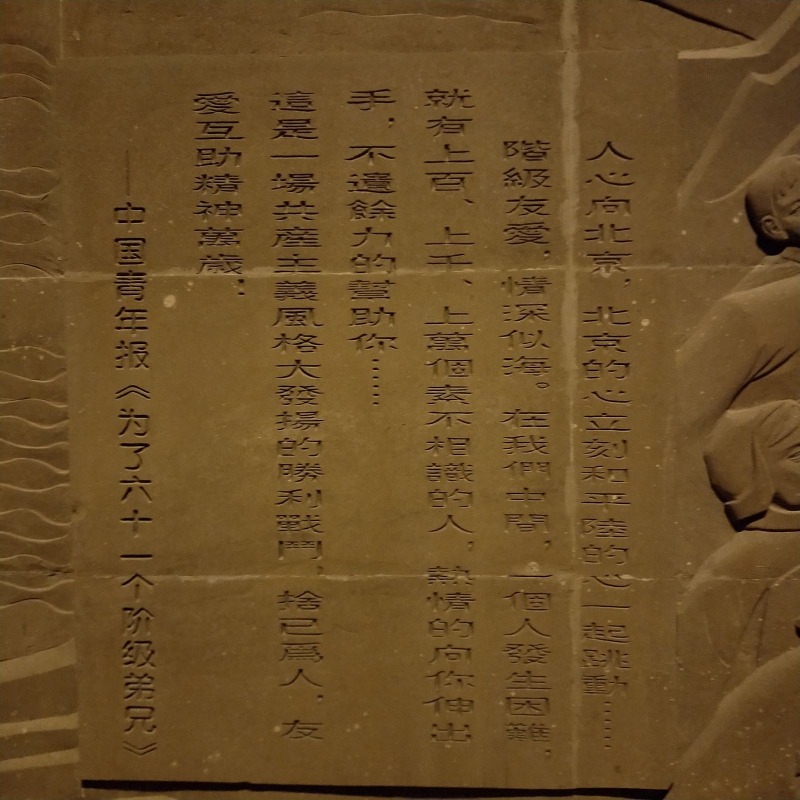 人心向北京，北京的心立刻和平陸的心一起跳動……
階級友愛，情深似海。在我們中間，一個人發生困難，
就有上百、上千、上萬個素不相識的人，熱情的向你伸出
手，不遺餘力的幫助你……
這是一場共產主義風格大發揚的勝利戰鬥，捨己爲人，友
愛互助精神萬歲！
——中国青年报《为了六十一个阶级弟兄》